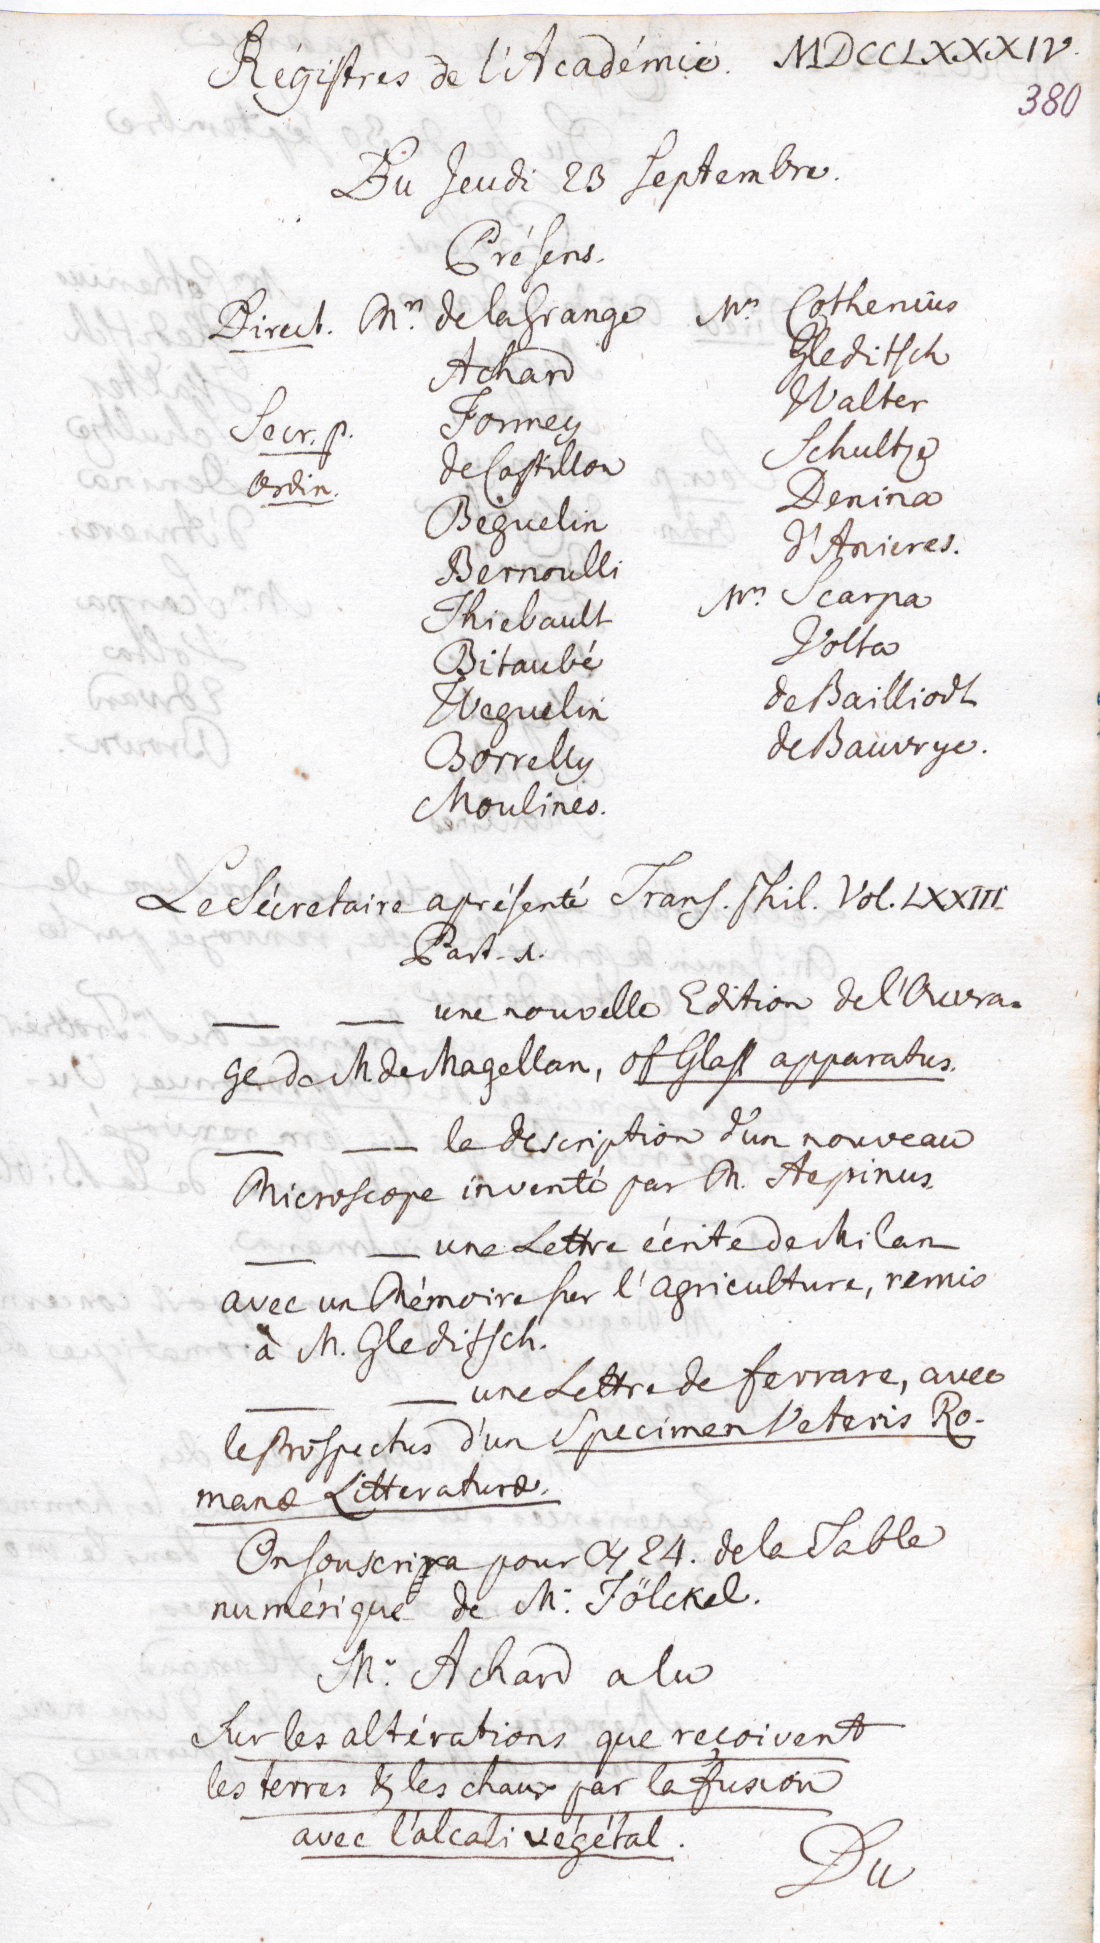 Régistres de l'Académie. MDCCLXXXIV.
380
Du Jeudi 23 Septembre.
Présens.
Direct. Mrs. de la Grange
Achard
Secr. p. Formey
ordin. de Castillon
Beguelin
Bernoulli
Thiebault
Bitaubé
Weguelin
Borrelly
Moulines.
Mrs. Cothenius
Gleditsch
Walter
Schultze
Denina
d'Anieres.
Mrs. Scarpa
Volta
de Bailliodt
de Bauvrye.
Le Sécretaire a présenté Trans. Phil. Vol. LXXIII
Part. 1.
— — une nouvelle Edition de l'Ouvra-
ge de M. de Magellan, of Glass apparatus.
— — la description d'un nouveau
Microscope inventé par M. Aepinus.
— — une Lettre écrite de Milan
avec un Mémoire sur l'agriculture, remis
à M. Gleditsch.
— — une Lettre de ferrare, avec
le Prospectus d'un Specimen Veteris Ro-
manæ Litteraturæ.
On souscrira pour 24. de la Table
numérique de Mr. Fölckel.
Mr. Achard a lu
Sur les altérations que reçoivent
les terres & les chaux par la fusion
avec l'alcali végétal.
Du